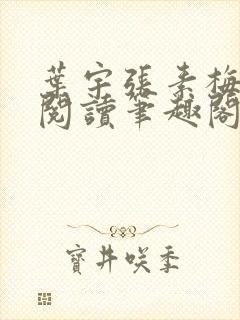 葉宇張素梅
閱讀筆趣閣
寶井咲季